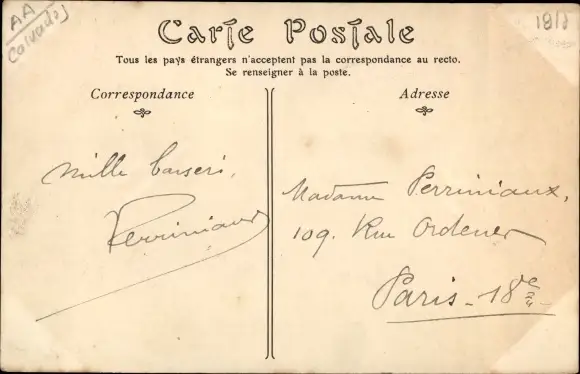 AA
Calvados
1813
Carte Postale
Tous les pays étrangers n'acceptent pas la correspondance au recto.
Se renseigner à la poste.
Correspondance
Mille baisers,
Perriniaux
Adresse
Madame Perriniaux,
109, Rue Ordener
Paris - 18e